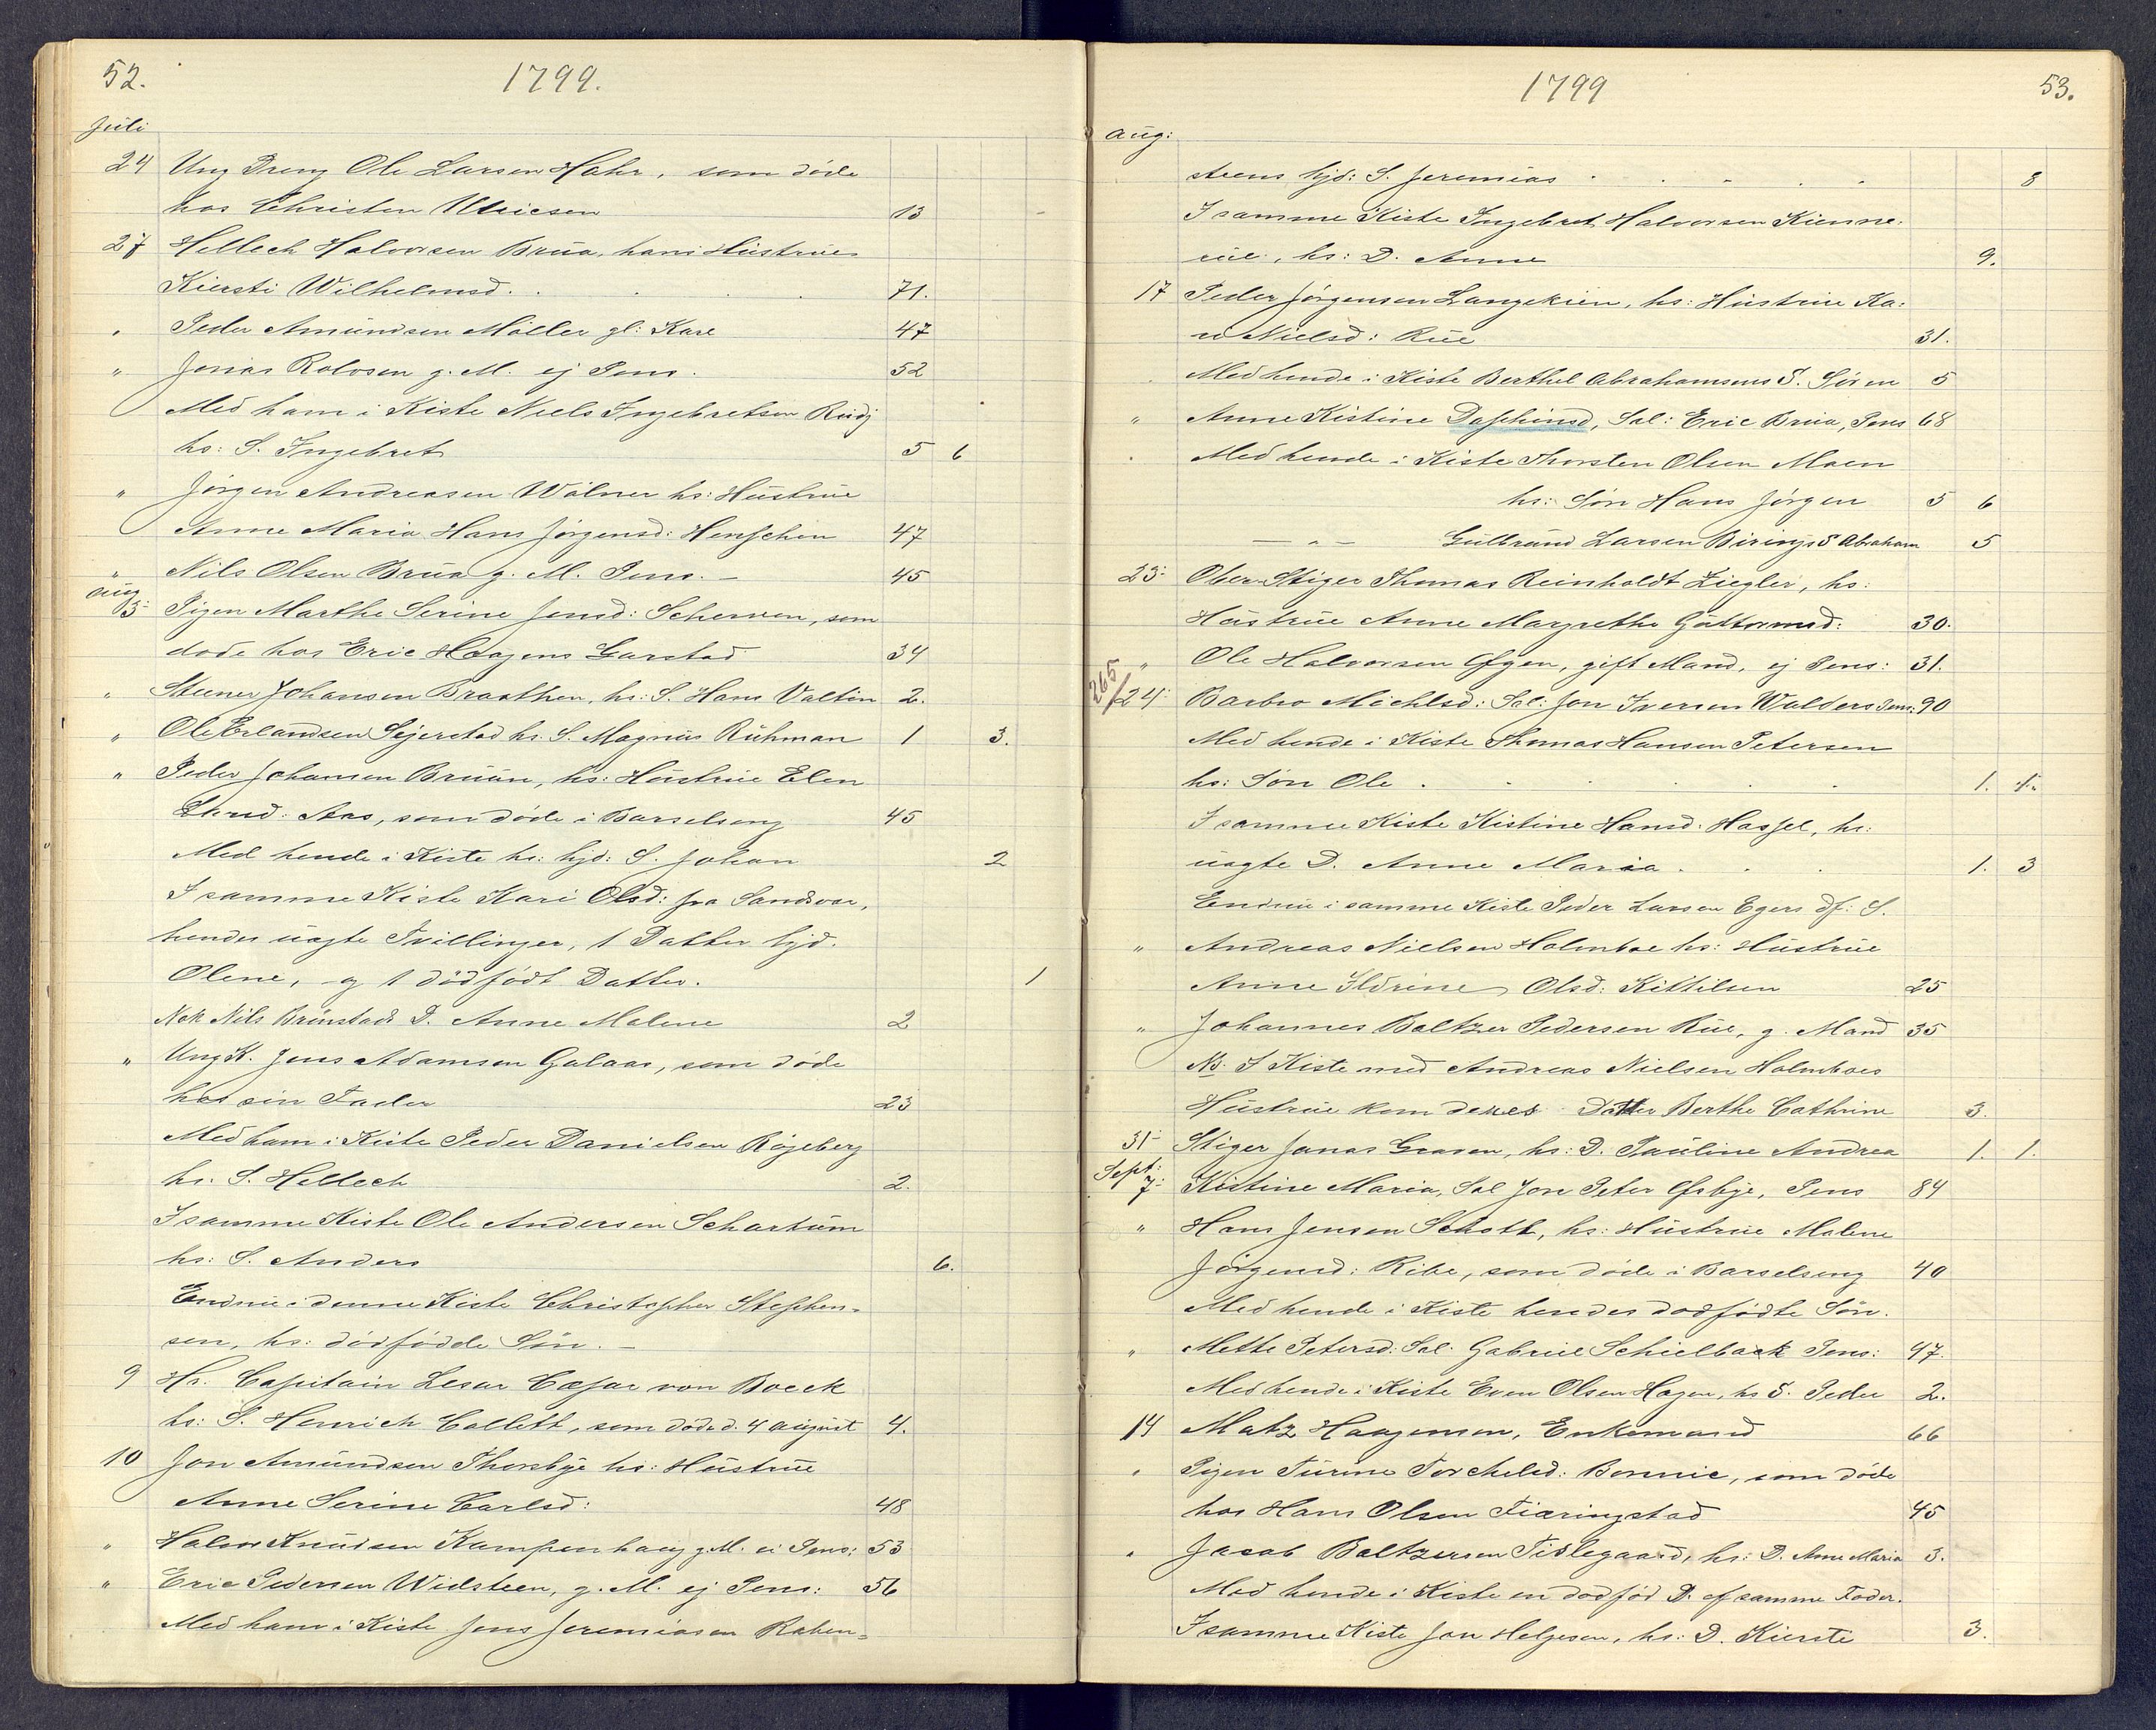 52.
1799.
Juli
24 Ung Dreng Ole Larsen Hahr, som döde
hos Christen Ulricsen 13
27 Hellech Halvorsen Brua, hans Hustrue
Kiersti Wilhelmsd. 71.
" Peder Amundsen Møller gl: Karl 47
" Jonas Rolosen g. M. ej Pens. 52
Med ham i Kiste Niels Ingebretsen Rudj
hs: S. Ingebret 5 6
" Jörgen Andreasen Wölner hs: Hustrue
Anne Maria Hans Jörgensd: Henschen 47
" Nils Olsen Brua g. M. Pens. – 45
Aug
3: Pigen Marthe Serine Jensd: Scherven, som
döde hos Eric Haagens Garstad 34
" Steener Johansen Braathen, hs: S. Hans Valtin 2.
" Ole Erlandsen Sejerstad hs. S. Magnus Ruhman 1 3.
" Peder Johansen Bruun, hs: Hustrue Elen
Aas, som döde i Barselseng 45
Med hende i Kiste hs: hjd: S. Johan 2
I samme Kiste Kari Olsd: fra Sandsvær,
hendes uægte Tvillinger, 1 Datter hjd.
Olene, og 1 dödfödt Datter. 1
Nok Nils Brunstads D. Anne Malene 2
" Ung K. Jens Adamsen Galaas, som döde
hos sin Fader 23
Med ham i Kiste Peder Danielsen Rögeberg
hs. S. Hellech 2.
I samme Kiste Ole Andersen Schartum
hs: S. Anders 6.
Endnu i denne Kiste Christopher Stephen-
sen, hs: dödfödde Sön. –
9 Hr. Capitain Cæsar von Boeck
hs: S. Henrich Collett, som döde d. 4 August 4.
10 Jon Amundsen Thorsbye hs: Hustrue
Anne Serine Carlsd: 48
" Halvor Knudsen Kampenhaug g. M. ei Pens: 53
" Eric Pedersen Widsteen, g. M. ej Pens: 56
Med ham i Kiste Jens Jeremiasen Raben-
1799
53.
Aug:
steens hjd: S. Jeremias 8
I samme Kiste Ingebret Halvorsen Kienne-
rue, hs: D. Anne 9.
17 Peder Jörgensen Langekiin, hs: Hustrue Ka:
ri Nielsd: Rue 31.
Med hende i Kiste Berthel Abrahamsens S. Sören 5
" Anne Kistine Daschinsd, Sal: Eric Brua, Pens 68
Med hende i Kiste Thorsten Olsen Moen
hs: Sön Hans Jörgen 5 6
– " – Gulbrand Larsen Birings S Abraham 5
23: Ober-Stiger Thomas Reinholdt Ziegler, hs:
Hustrue Anne Margrethe Guttormsd: 30.
" Ole Halvorsen Ofgen, gift Mand, ej Pens: 31.
265/24: Barbro Michlsd: Sal: Jon Iversen Walders Pens: 90
Med hende i Kiste Thomas Hansen Petersen
hs: Sön Ole. 1. 1.
I samme Kiste Kistine Hansd: Hassel, hs:
uægte D. Anne Maria. 1. 3
Endnu i samme Kiste Peder Larsen Egers df: S.
" Andreas Nielsen Holmboe hs: Hustrue
Anne Ildrine Olsd: Kittilsen 25
" Johannes Baltzer Pedersen Rue, g. Mand 35
Nb. I Kiste med Andreas Nielsen Holmboes
Hustrue kom deres Datter Berthe Cathrine 3.
31: Stiger Jonas Graven, hs: D. Pauline Andrea 1. 1.
Sept:
7: Kistine Maria, Sal Jon Peter Ofsbye, Pens 84
" Hans Jensen Schott, hs: Hustrue Malene
Jörgensd: Ribe, som döde i Barselseng 40
Med hende i Kiste hendes dödfödte Sön.
" Mette Petersd: Sal. Gabriel Schielback Pens: 47.
Med hende i Kiste Even Olsen Hagen, hs S. Peder 2.
14 Matz Haagensen, Enkemand 66
" Pigen Turine Torchelsd: Bonnie, som döde
hos Hans Olsen Fiæringstad 45
" Jacob Baltzersen Tislegaard, hs: D. Anne Maria 3.
Med hende i Kiste en dödfød D. af samme Fader.
I samme Kiste Jon Helgesen, hs: D. Kierste 3.